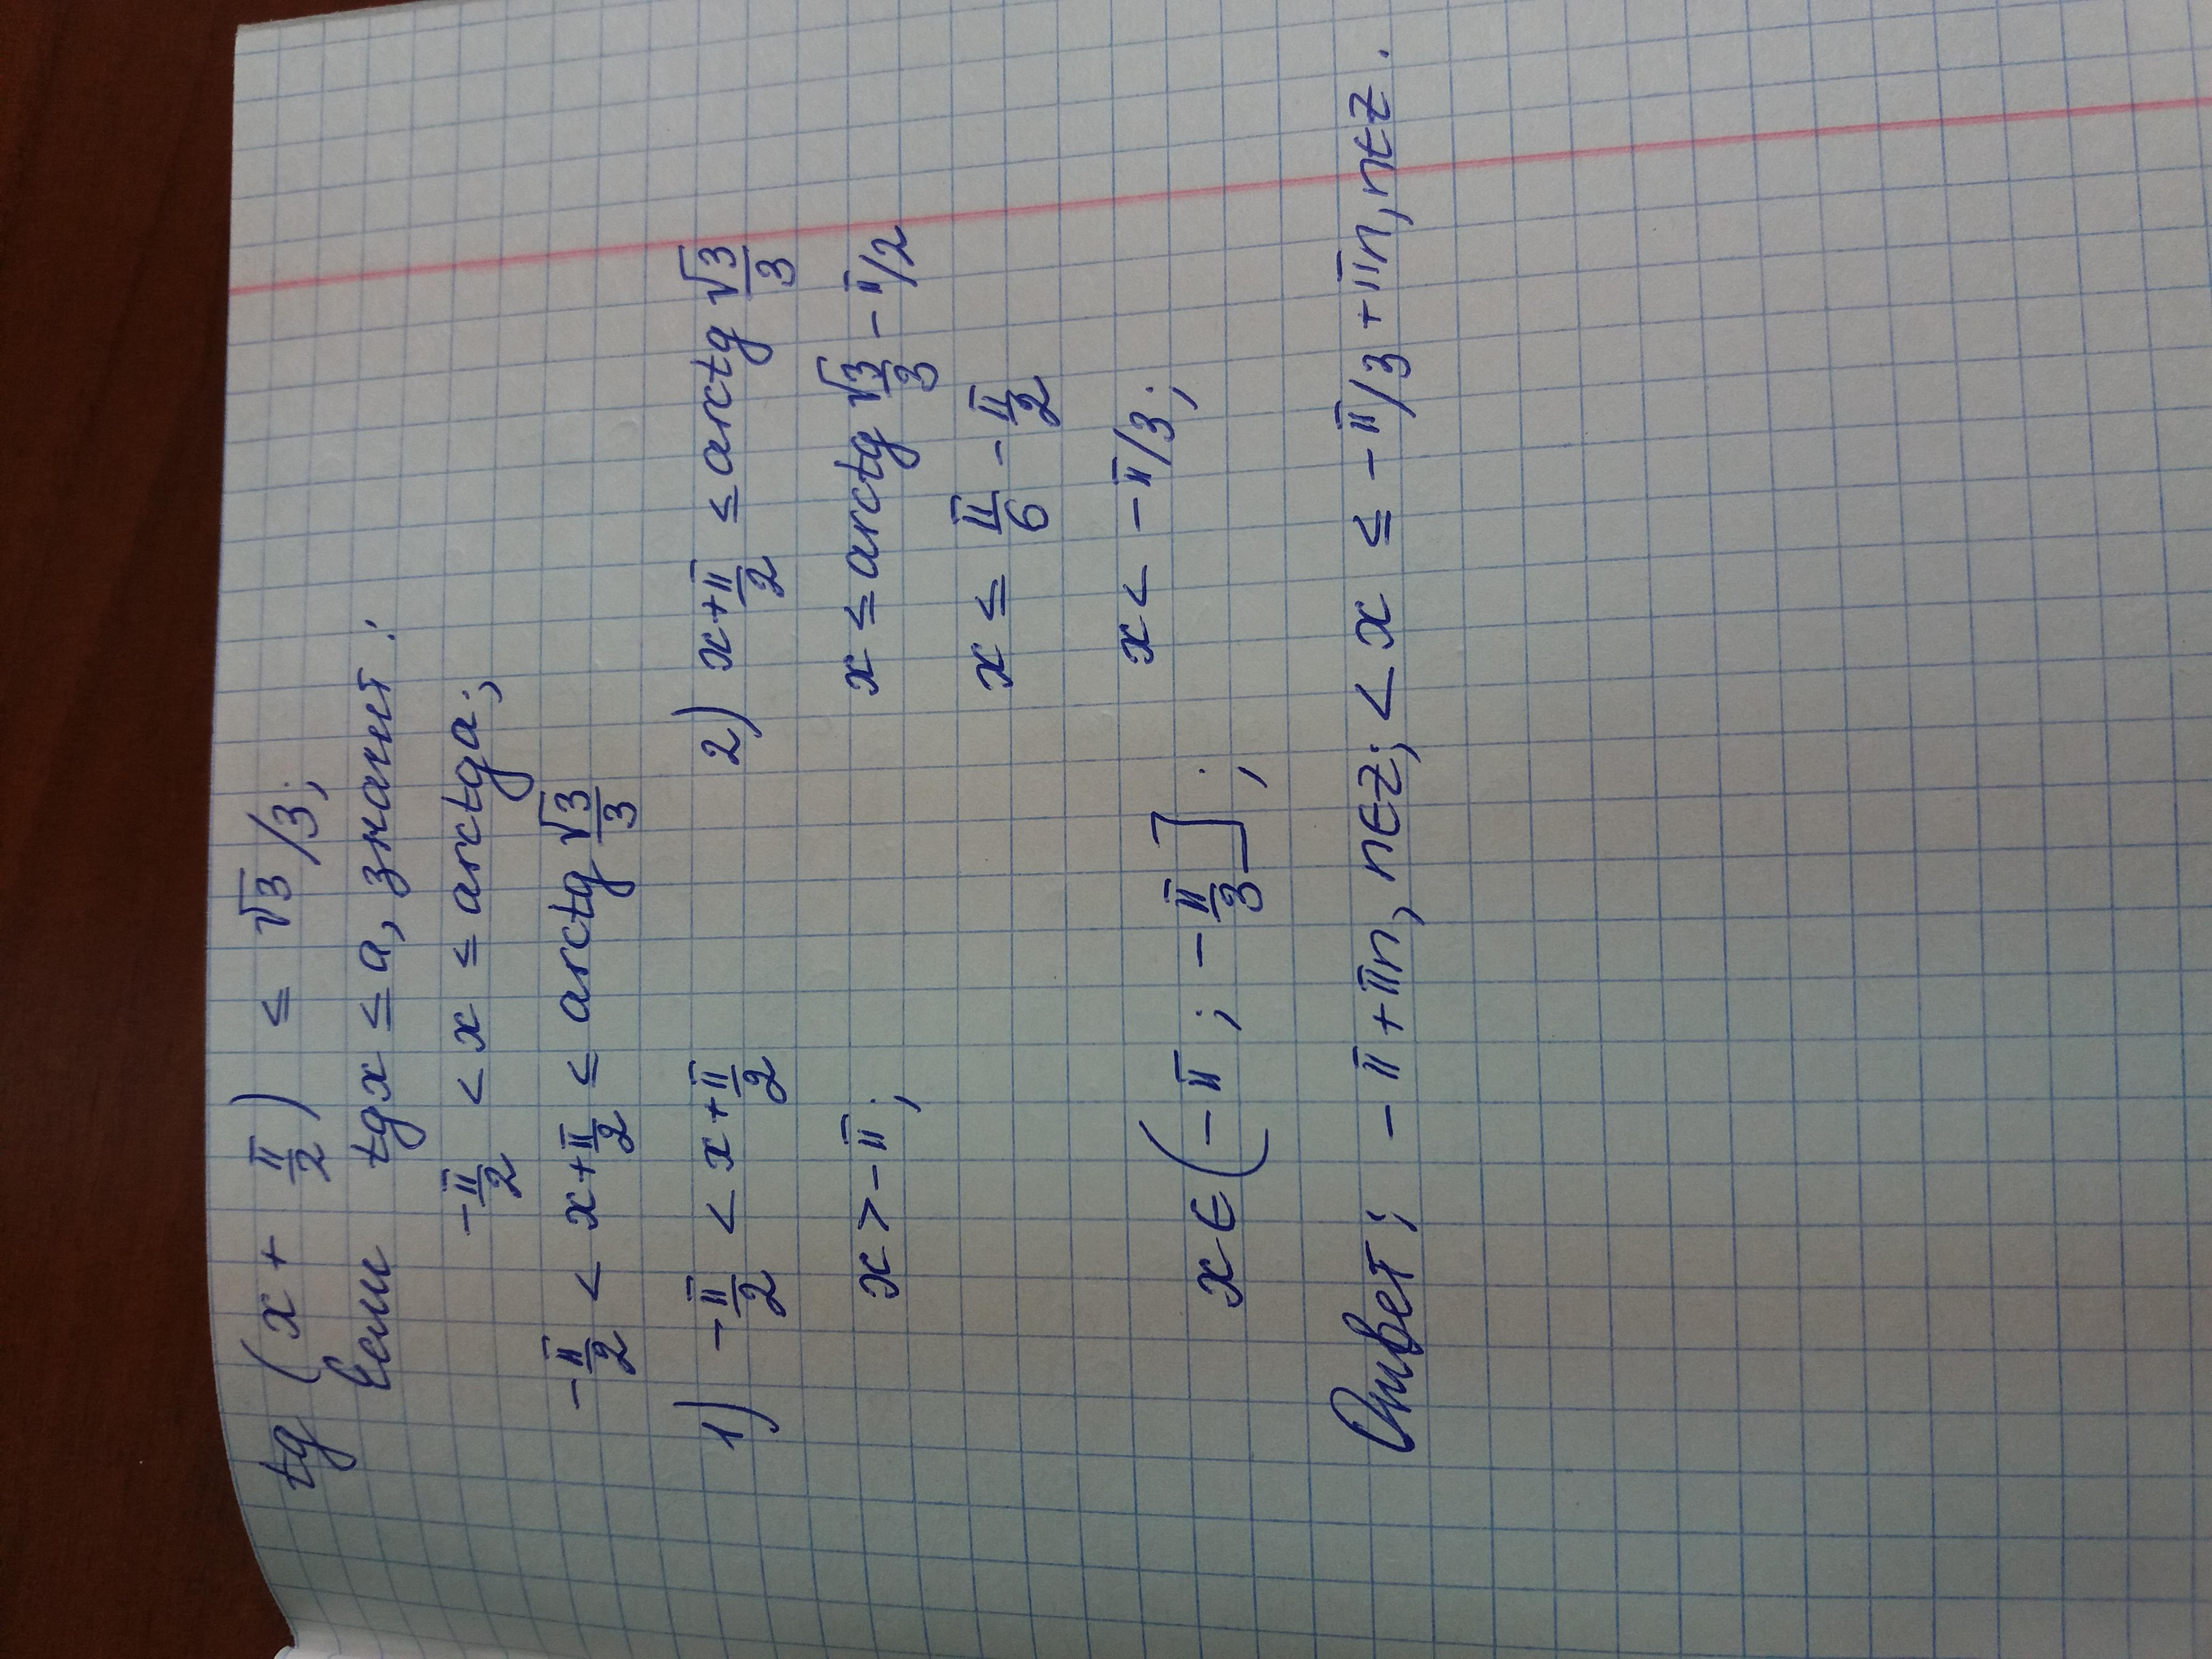 tg (x + π/2) ≤ √3/3;
Если tgx ≤ a, значит:
-π/2 < x ≤ arctga;
-π/2 < x+π/2 ≤ arctg √3/3
1) -π/2 < x+π/2 2) x+π/2 ≤ arctg √3/3
x>-π; x ≤ arctg √3/3 - π/2
x ≤ π/6 - π/2
x < -π/3;
x ∈ (-π; -π/3];
Ответ: -π+πn, n∈z; < x ≤ -π/3+πn, n∈z.